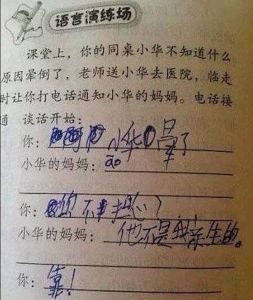 语言演练场
课堂上，你的同桌小华不知道什么
原因晕倒了，老师送小华去医院，临走
时让你打电话通知小华的妈妈。电话接
通 谈话开始：
你： 小华 晕了
小华的妈妈：áo
你： 不
小华的妈妈：他也不是我亲生的。
你：靠！